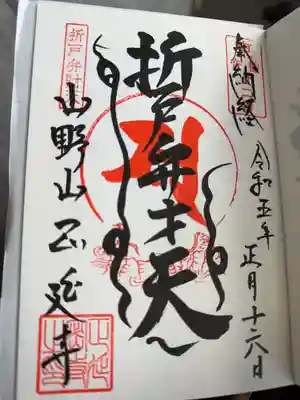 奉納経
令和五年 正月十六日
折戸弁才天
折戸弁財
山野山正延寺